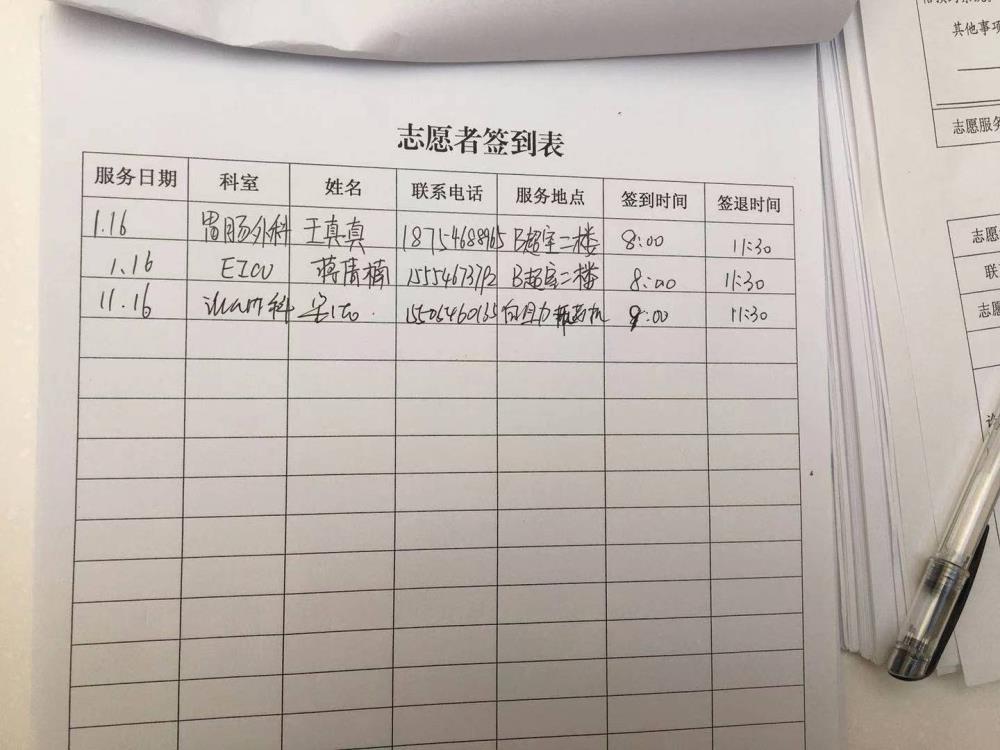 志愿者签到表
服务日期 科室 姓名 联系电话 服务地点 签到时间 签退时间
1.16 胃肠外科 王真真 18754688965 B超室二楼 8:00 11:30
1.16 EICU 蒋倩楠 15554673792 B超室二楼 8:00 11:30
11.16 科 8:00 11:30
其他事项
志愿服务
志愿
联
志愿